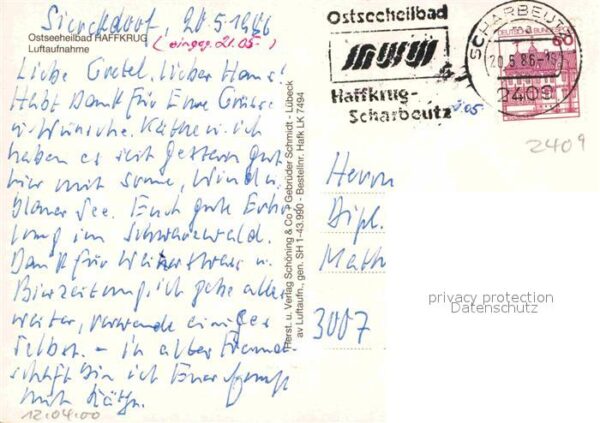 Sierksdorf, 20.5.1986
Ostseeheilbad HAFFKRUG
Luftaufnahme
(eingeg. 21.05.)
Liebe Gretel, lieber Hans!
Habt Dank für Eure Grüße
u. Wünsche. Käthe u. ich
haben es seit gestern gut
hier mit Sonne, Wind u.
blauer See. Euch gute Erho-
lung im Schwarzwald.
Dank für u.
Bierzeitung, ich gebe alles
weiter, verwende einiges
selbst. - In alter Freund-
schaft bin ich Euer
mit Käthe.
12.04.00
Herst. u. Verlag Schöning & Co + Gebrüder Schmidt - Lübeck
av Luftaufn., gen. SH 1-43.990 - Bestellnr. Hafk LK 7494
Ostseeheilbad
Haffkrug-
Scharbeutz
SCHARBEUTZ
20.5.86
2409
DEUTSCHE BUNDESPOST
60
2409
Herrn
Dipl.
Math
3007
privacy protection
Datenschutz